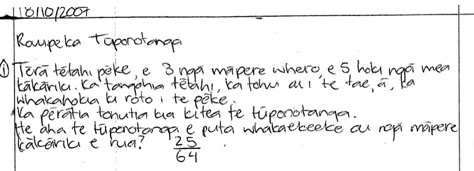 10/10/2007
Raupeka Tūponotanga
① Tērā tētahi pēke, e 3 ngā māpere whero, e 5 hoki ngā mea
kākāriki. Ka tangohia tētahi, ka tohu au i te tae, ā, ka
whakahokia ki roto i te pēke.
Ka pēratia tonutia kia kitea te tūponotanga.
He aha te tūponotanga e puta whakaekeeke ai ngā māpere
kākāriki e rua? 25/64